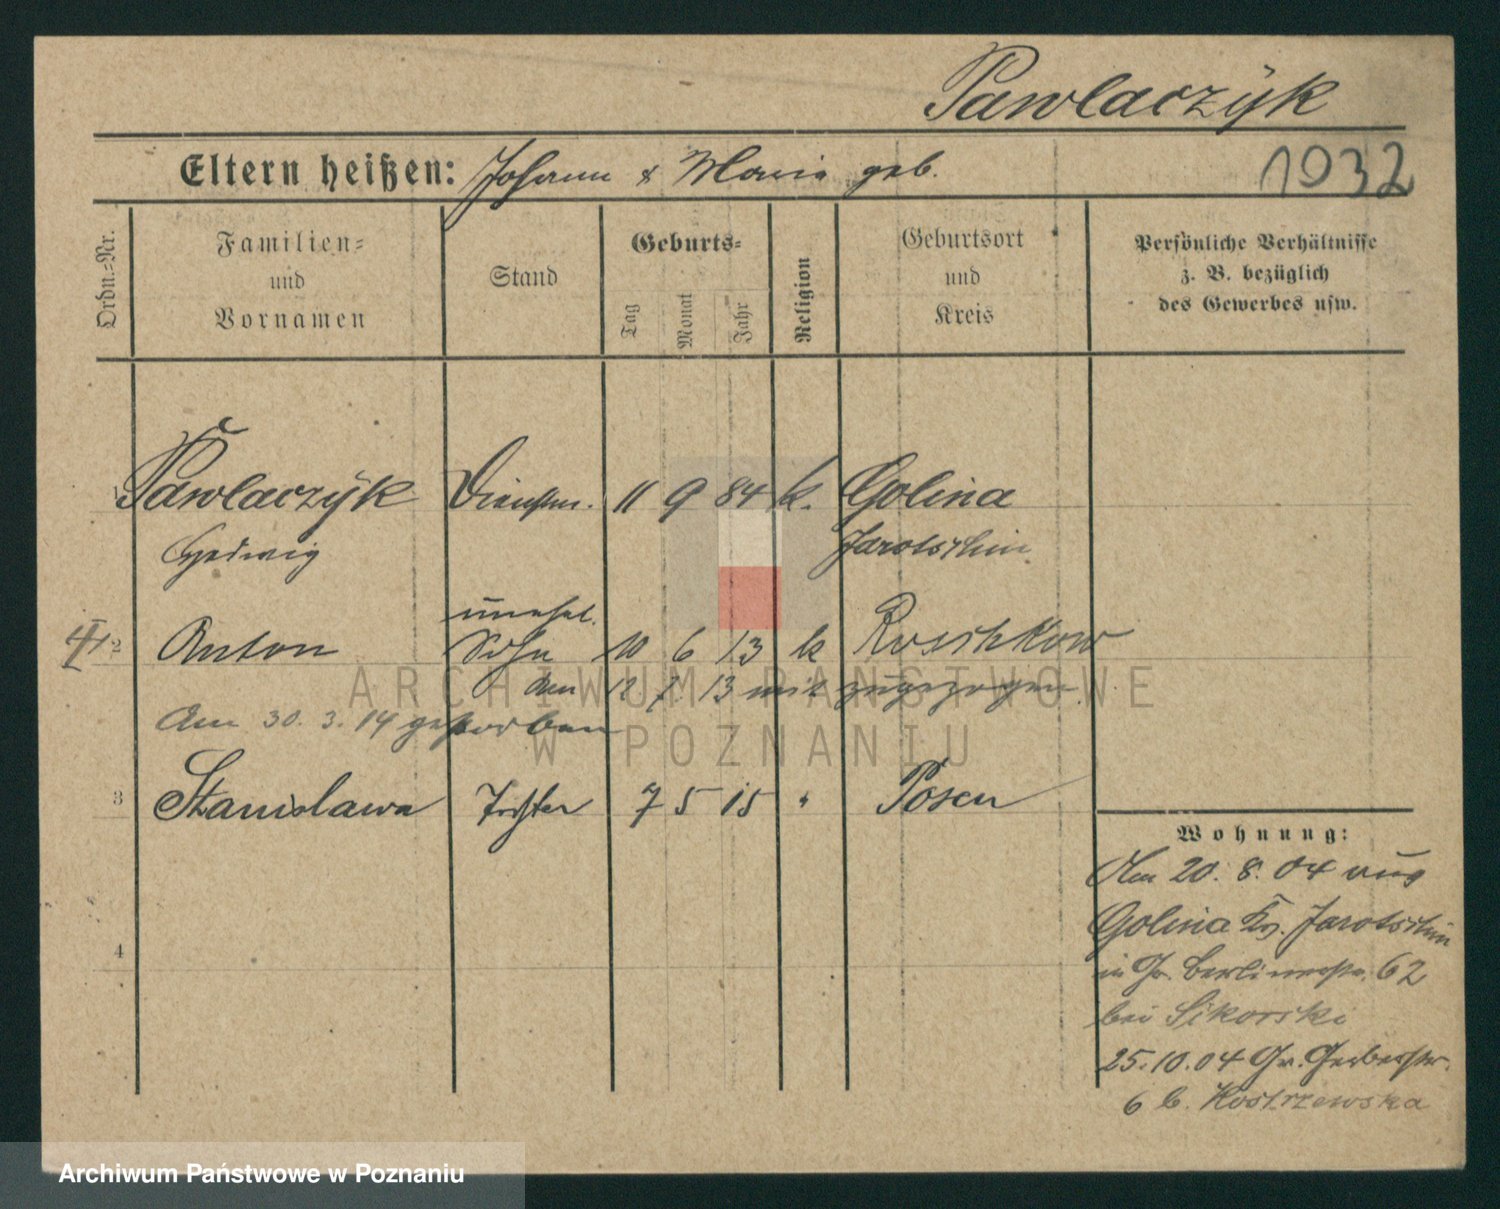 Pawlaczÿk
Eltern heißen: Johann & Maria geb.
1932
Ordn.-Nr.
Familien-
und
Vornamen
Stand
Geburts-
Tag
Monat
Jahr
Religion
Geburtsort
und
Kreis
Persönliche Verhältnisse
z. B. bezüglich
des Gewerbes usw.
1 Pawlaczÿk Dienstm. 11 9 84 k. Golina
Hedwig Jarotschin
unehel.
2 Anton Sohn 10 6 13 k Roschkow
Am 12 7 13 mit zugezogen.
Am 30. 3. 14 gestorben
3 Stanislawa Tochter 7 5 15 " Posen
4
Wohnung:
Am 20. 8. 04 aus
Golina Kr. Jarotschin
in Gr. Berlinerstr. 62
bei Sikorski
25.10.04 Gr. Gerberstr.
6 b. Kostrzewska
ARCHIWUM PAŃSTWOWE
W POZNANIU
Archiwum Państwowe w Poznaniu